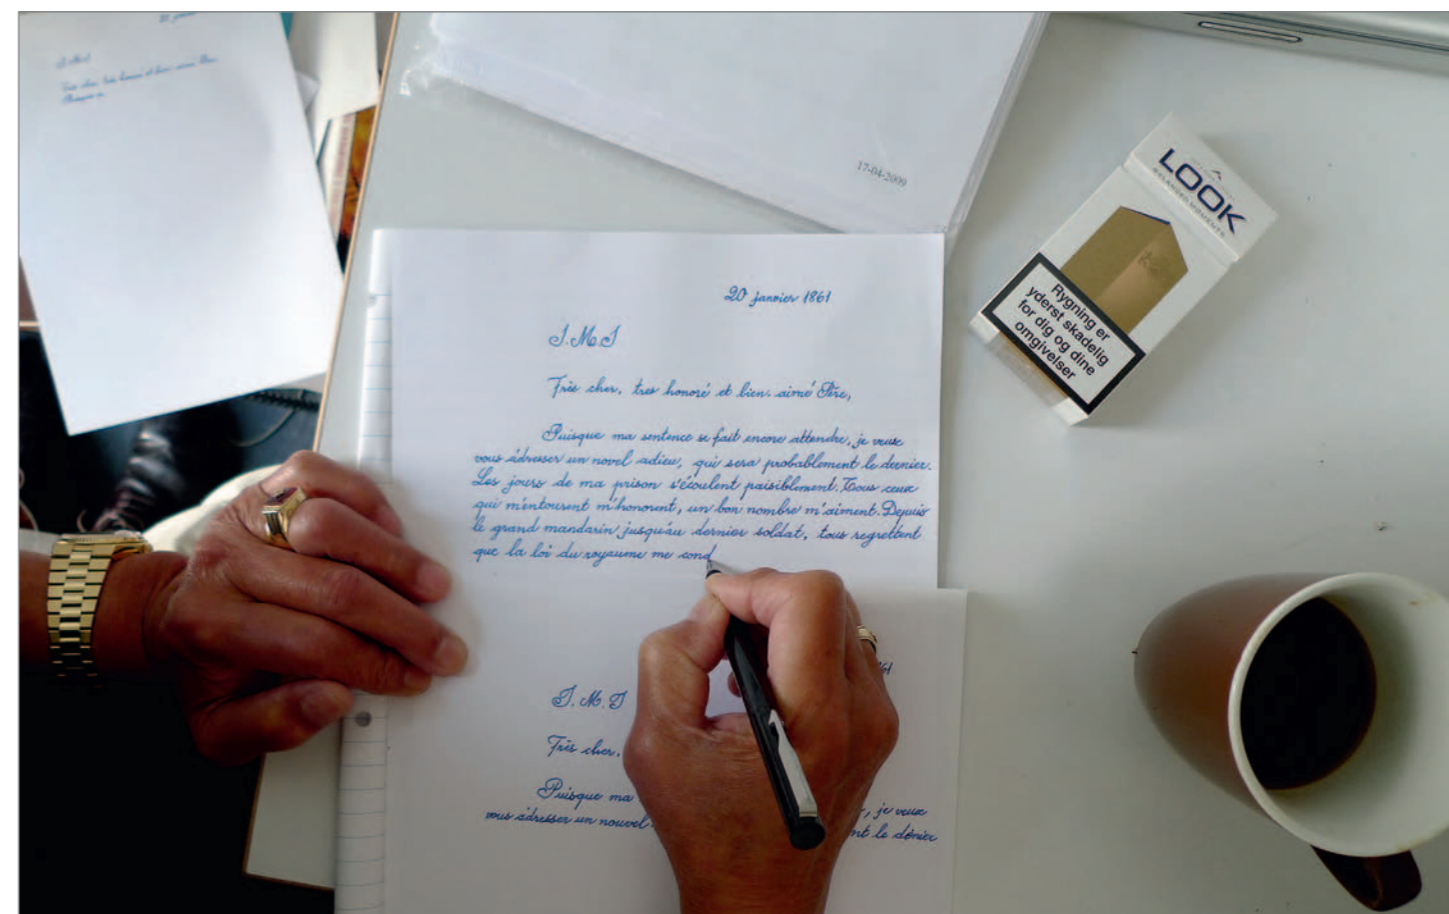 J.M.J
Très cher, très honoré et bien-aimé Père,
17-04-2009
LOOK
Rygning er
yderst skadelig
for dig og dine
omgivelser
20 janvier 1861
J.M.J
Très cher, tres honoré et bien-aimé Père,
Puisque ma sentence se fait encore attendre, je veux
vous adresser un novel adieu, qui sera probablement le dernier.
Les jours de ma prison s'écoulent paisiblement. Tous ceux
qui m'entourent m'honorent, un bon nombre m'aiment. Depuis
le grand mandarin jusqu'au dernier soldat, tous regrettent
que la loi du royaume me cond
61
J.M.J
Très cher,
Puisque ma , je veux
vous adresser un nouvel nt le dernier